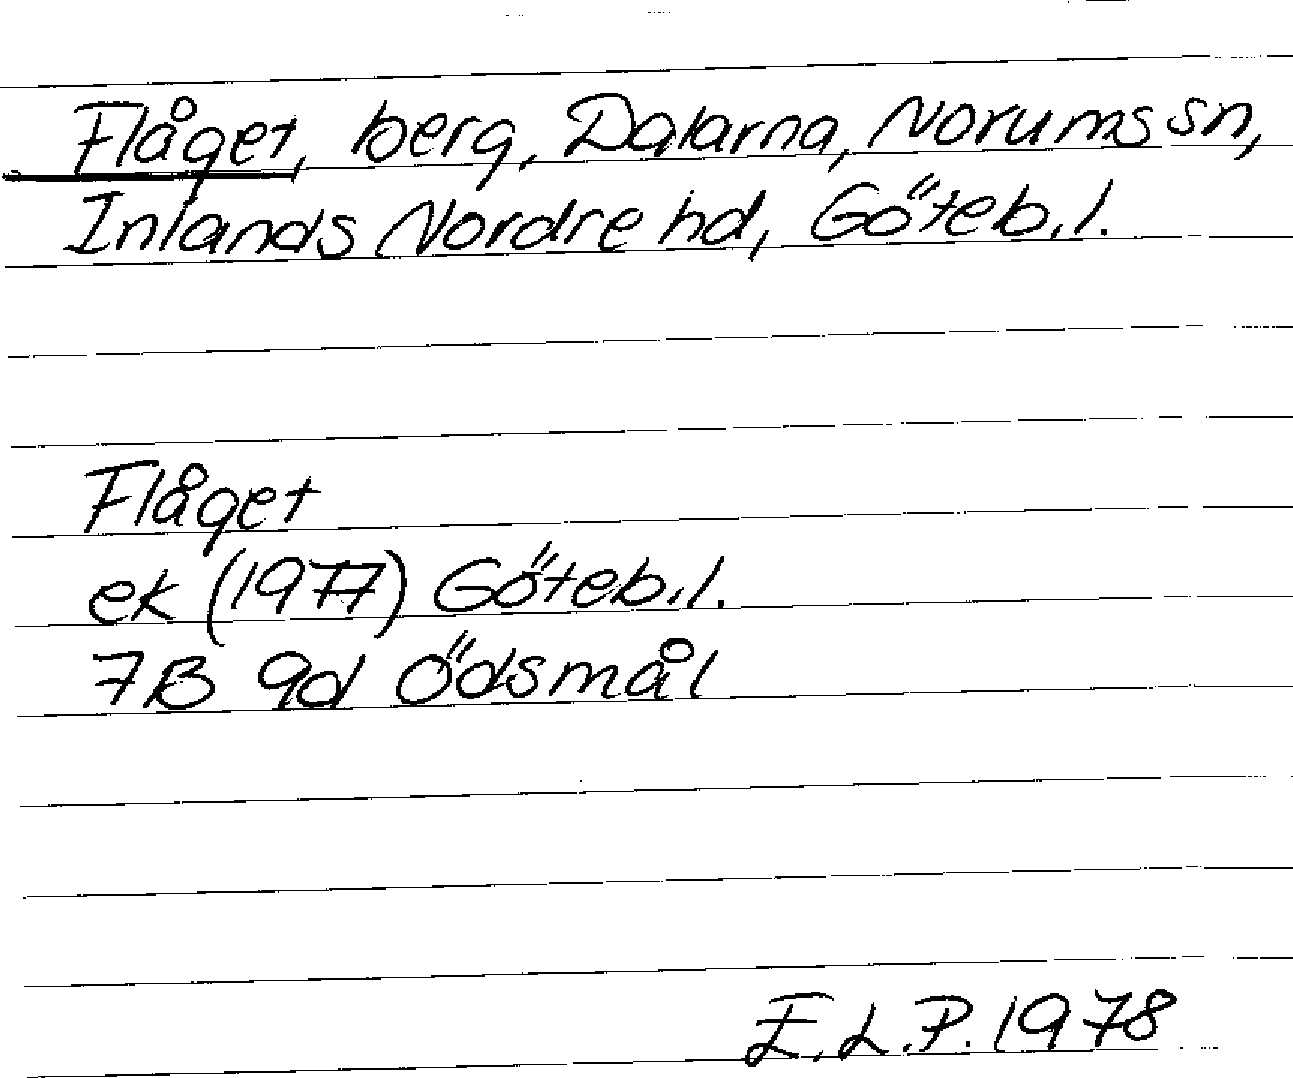 Flåget, berg, Dalarna, Norums sn,
Inlands Nordre hd, Göteb.l.
Flåget
ek (1977) Göteb.l.
7B 9d Ödsmål
E.L.P. 1978